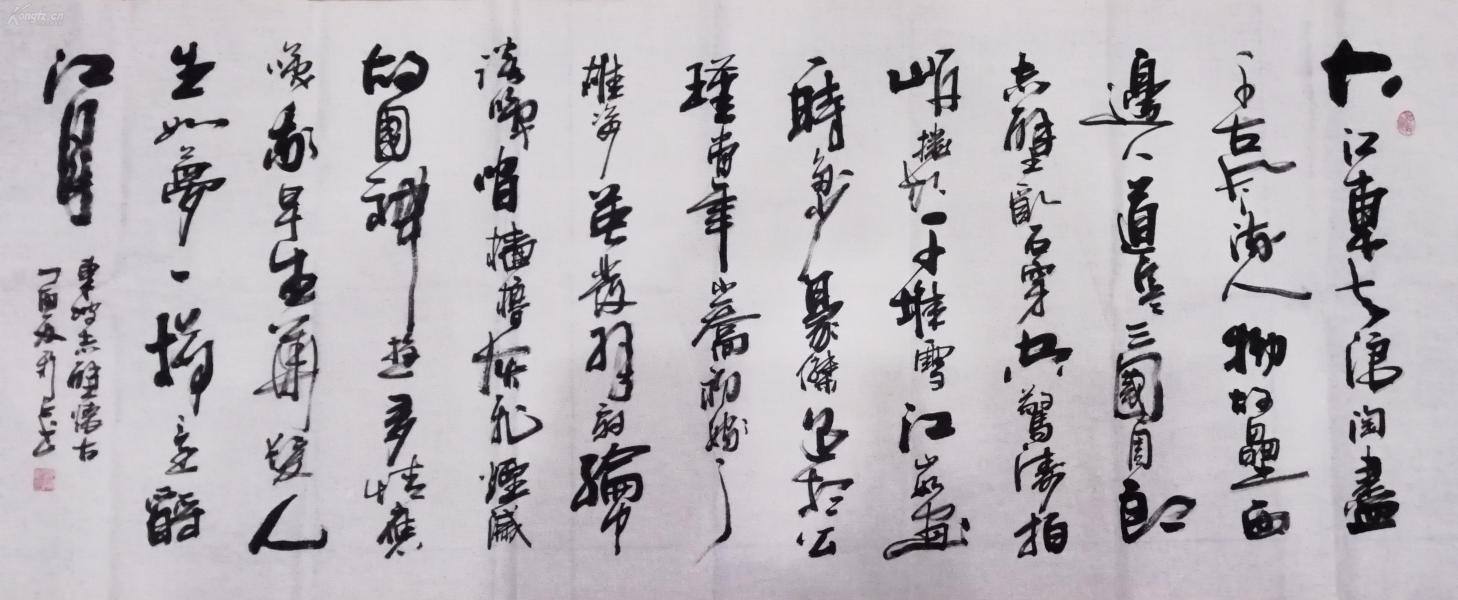 大江東去浪淘盡
千古風流人物故壘西
邊人道是三國周郎
赤壁亂石穿空驚濤拍
岸捲起千堆雪江山如畫
一時多少豪傑遙想公
瑾當年小喬初嫁了
雄姿英發羽扇綸巾
談笑間檣櫓灰飛煙滅
故國神遊多情應
笑我早生華髮人
生如夢一樽還酹
江月
東坡赤壁懷古
丁酉秋
Kongfz.cn